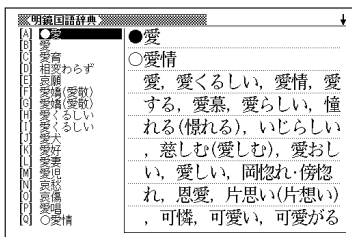 明鏡国語辞典
[A] ●愛
[B] 愛
[C] 愛育
[D] 相変わらず
[E] 哀願
[F] 愛嬌(愛敬)
[G] 愛嬌(愛敬)
[H] 愛くるしい
[I] 愛くるしい
[J] 愛犬
[K] 愛好
[L] 愛妻
[M] 愛児
[N] 哀愁
[O] 哀傷
[P] 愛唱
[Q] ○愛情
●愛
○愛情
愛, 愛くるしい, 愛情, 愛
する, 愛慕, 愛らしい, 憧
れる(憬れる), いじらしい
, 慈しむ(愛しむ), 愛おし
い, 愛しい, 岡惚れ・傍惚
れ, 恩愛, 片思い(片想い)
, 可憐, 可愛い, 可愛がる